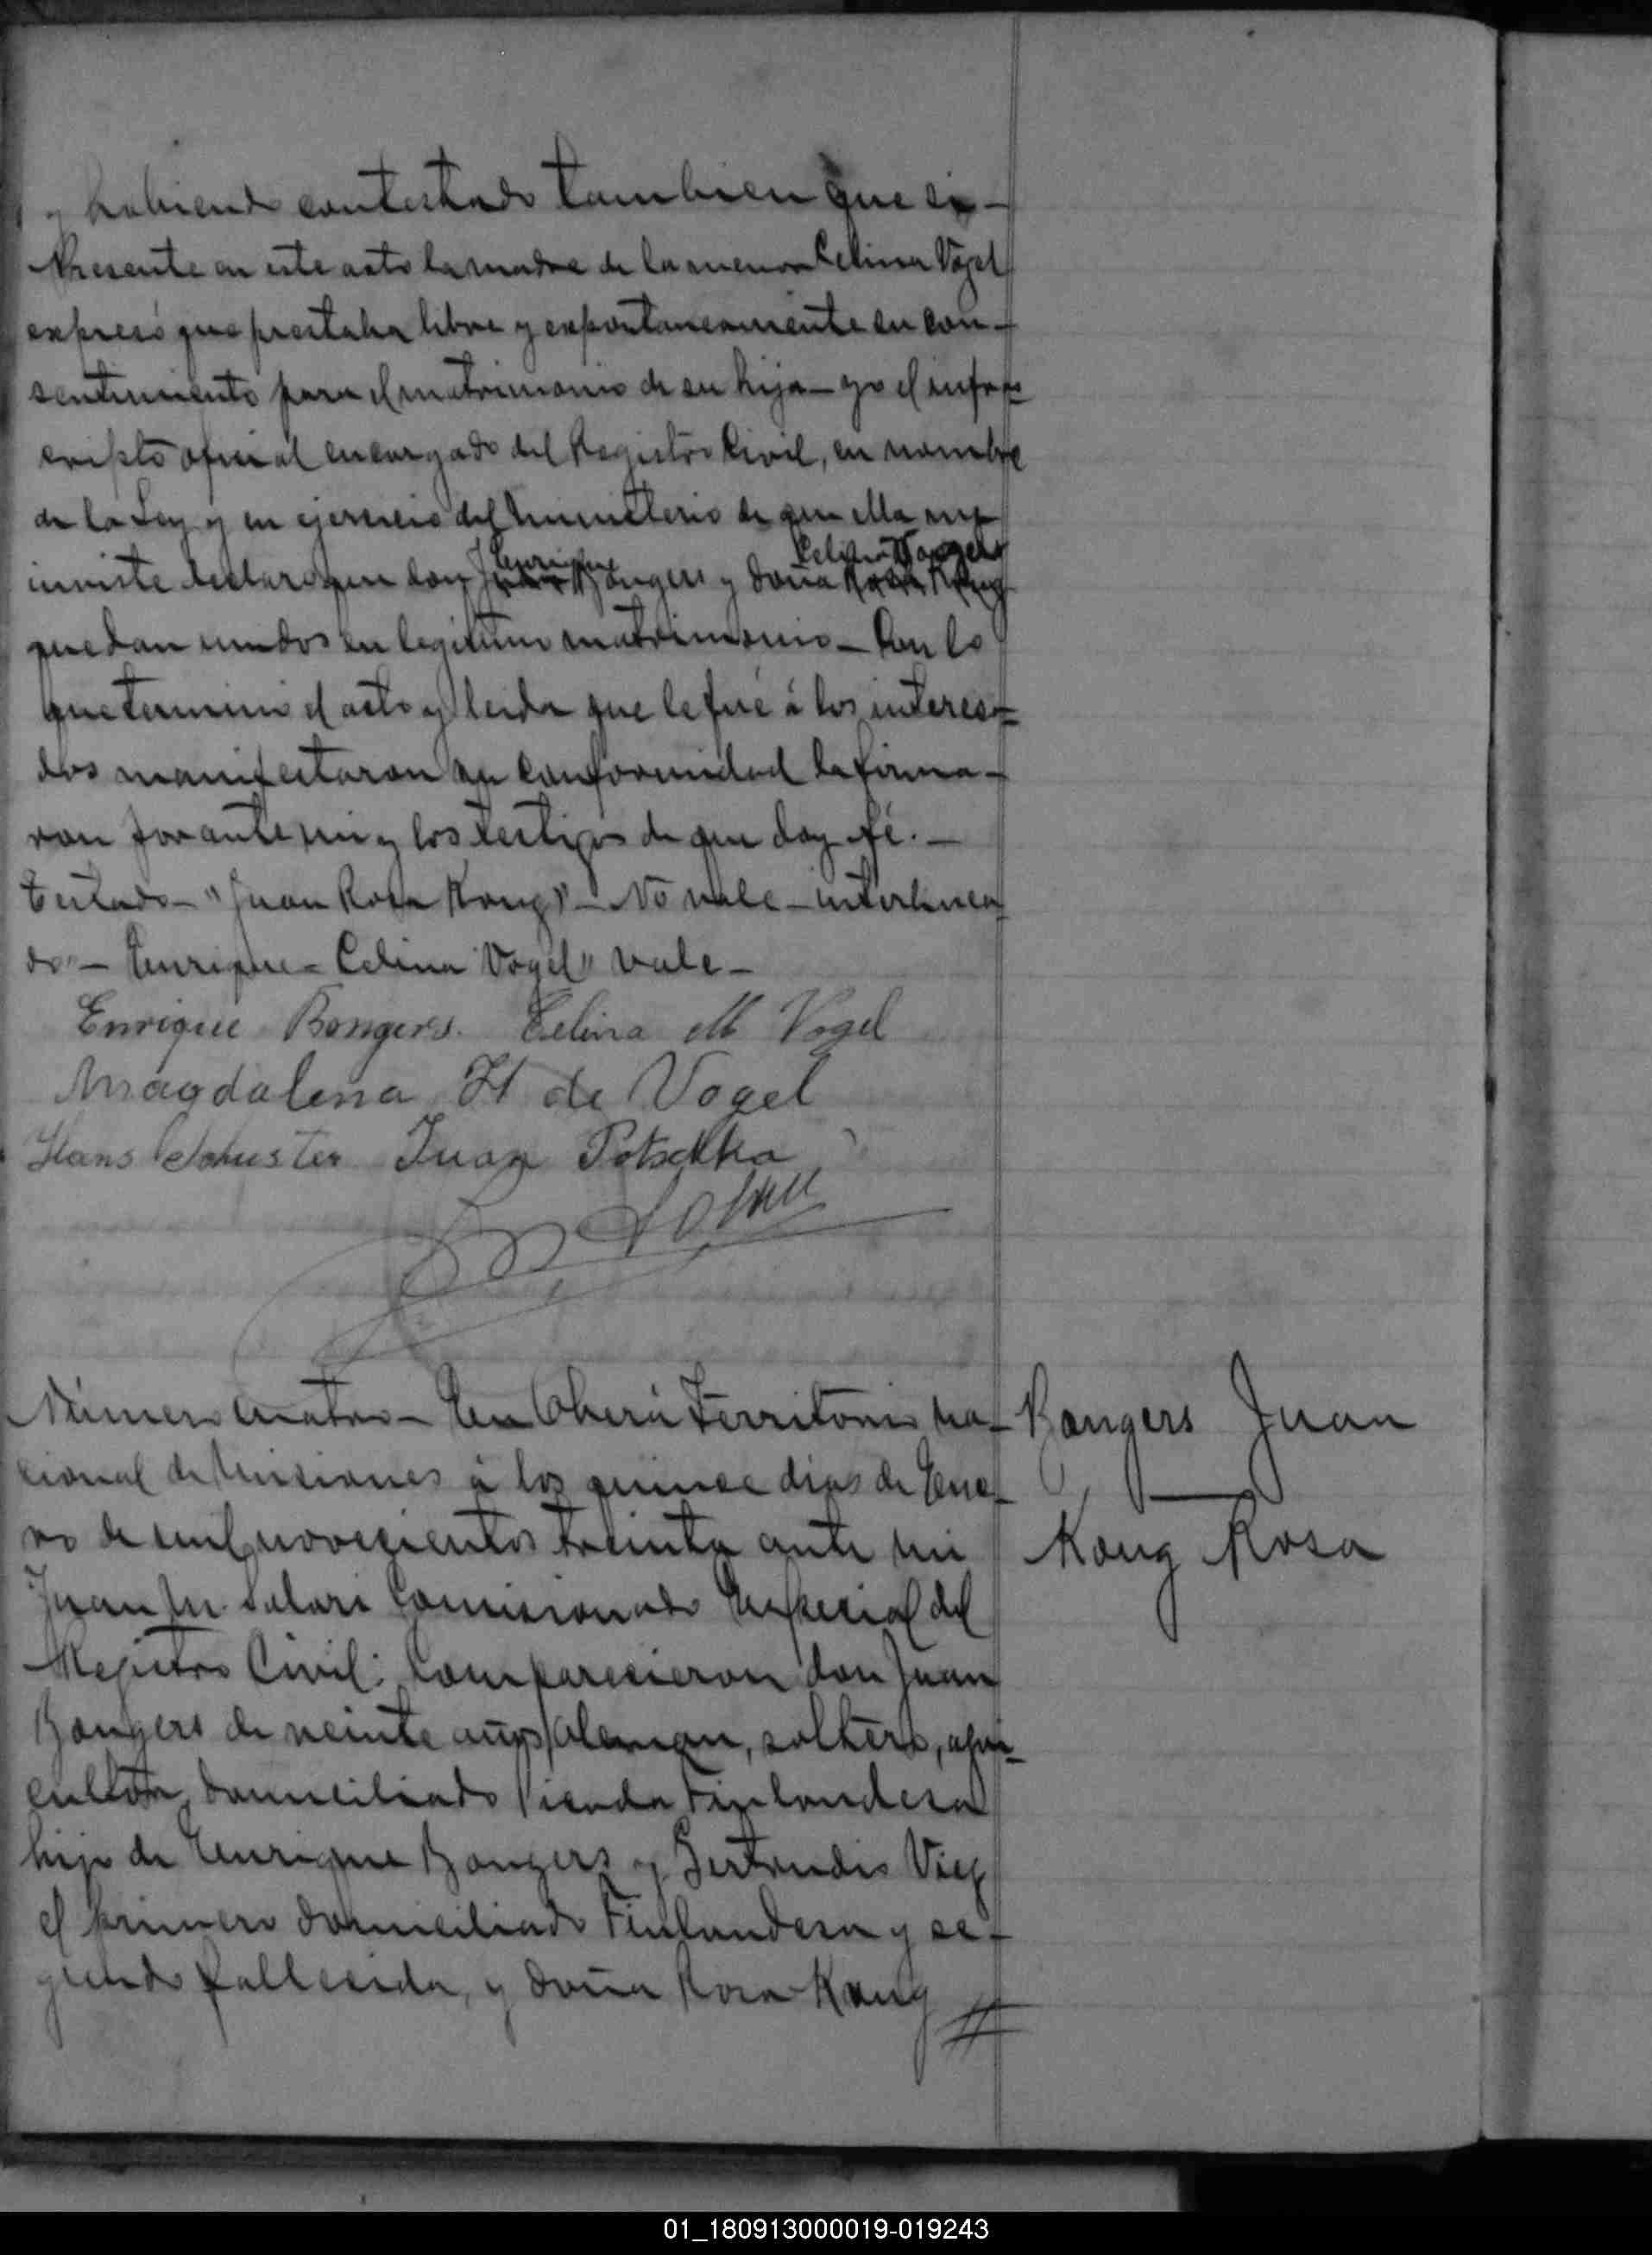 y habiendo contestado tambien que si –
Presente en este acto la madre de la menor Celina Vogel
expresó que prestaba libre y expontaneamente su con–
sentimiento para el matrimonio de su hija – yo el infras
cripto oficial encargado del Registro Civil, en nombre
de la Ley y en ejercicio del ministerio de que ella me
Enrique Celina Vogel
inviste declaro que don Juan Bongers y doña Rosa Kong
quedan unidos en legitimo matrimonio – Con lo
que terminó el acto y leida que le fué á los interesa=
dos manifestaron su conformidad la firma–
ron por ante mi y los testigos de que doy fé. –
Testado – "Juan Rosa Kong" – No vale – interlinea
do" – Enrique = Celina Vogel" vale –
Enrique Bongers. Celina M Vogel
Magdalena H de Vogel
Hans Schuster Juan Potschka
Número cuatro – En Oberá Territorio na–
cional de Misiones á los quince dias de Ene–
ro de mil novecientos treinta ante mi
Juan M. Salari Comisionado Especial del
Registro Civil: Comparecieron don Juan
Bongers de veinte años, aleman, soltero, agri–
cultor, domiciliado Picada Finlandesa
hijo de Enrique Bongers y Gertrudis
el primero domiciliado Finlandesa y se–
gundo fallecida, y doña Rosa Kong //
Bongers Juan
Kong Rosa
01_180913000019-019243